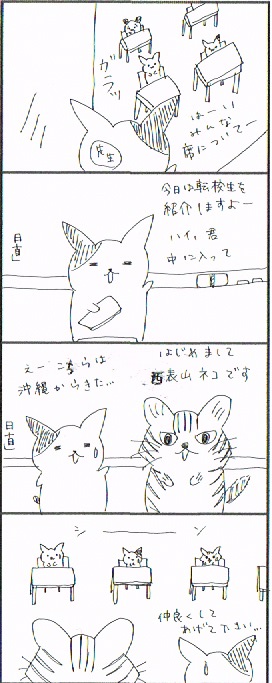 ガラッ
先生
はーい
みんな
席についてー
今日は転校生を
紹介しますよー
ハイ、君
中に入って
日直
はじめまして
西表山ネコです
えーこちらは
沖縄からきた…
日直
シーーーン
仲良くして
あげて下さい…